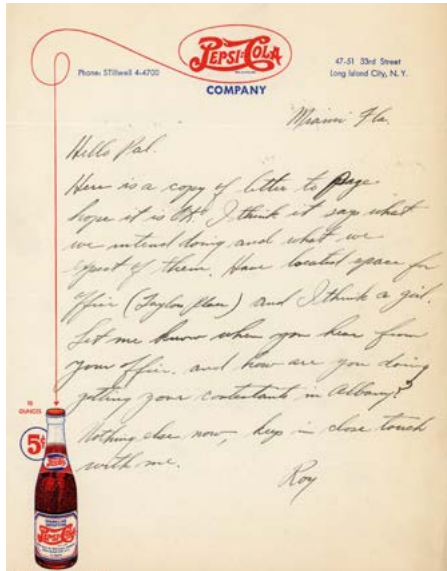 PEPSI-COLA
COMPANY
Phone: STillwell 4-4700
47-51 33rd Street
Long Island City, N. Y.
Miami Fla.
Hello Pal.
Here is a copy of letter to Page
hope it is OK. I think it says what
we intend doing and what we
expect of them. Have located space for
office (Taylors place) and I think a girl.
Let me know when you hear from
your office. and how are you doing
getting your contestants in Albany?
Nothing else now, keep in close touch
with me.
Roy
12
OUNCES
5¢
PEPSI-COLA